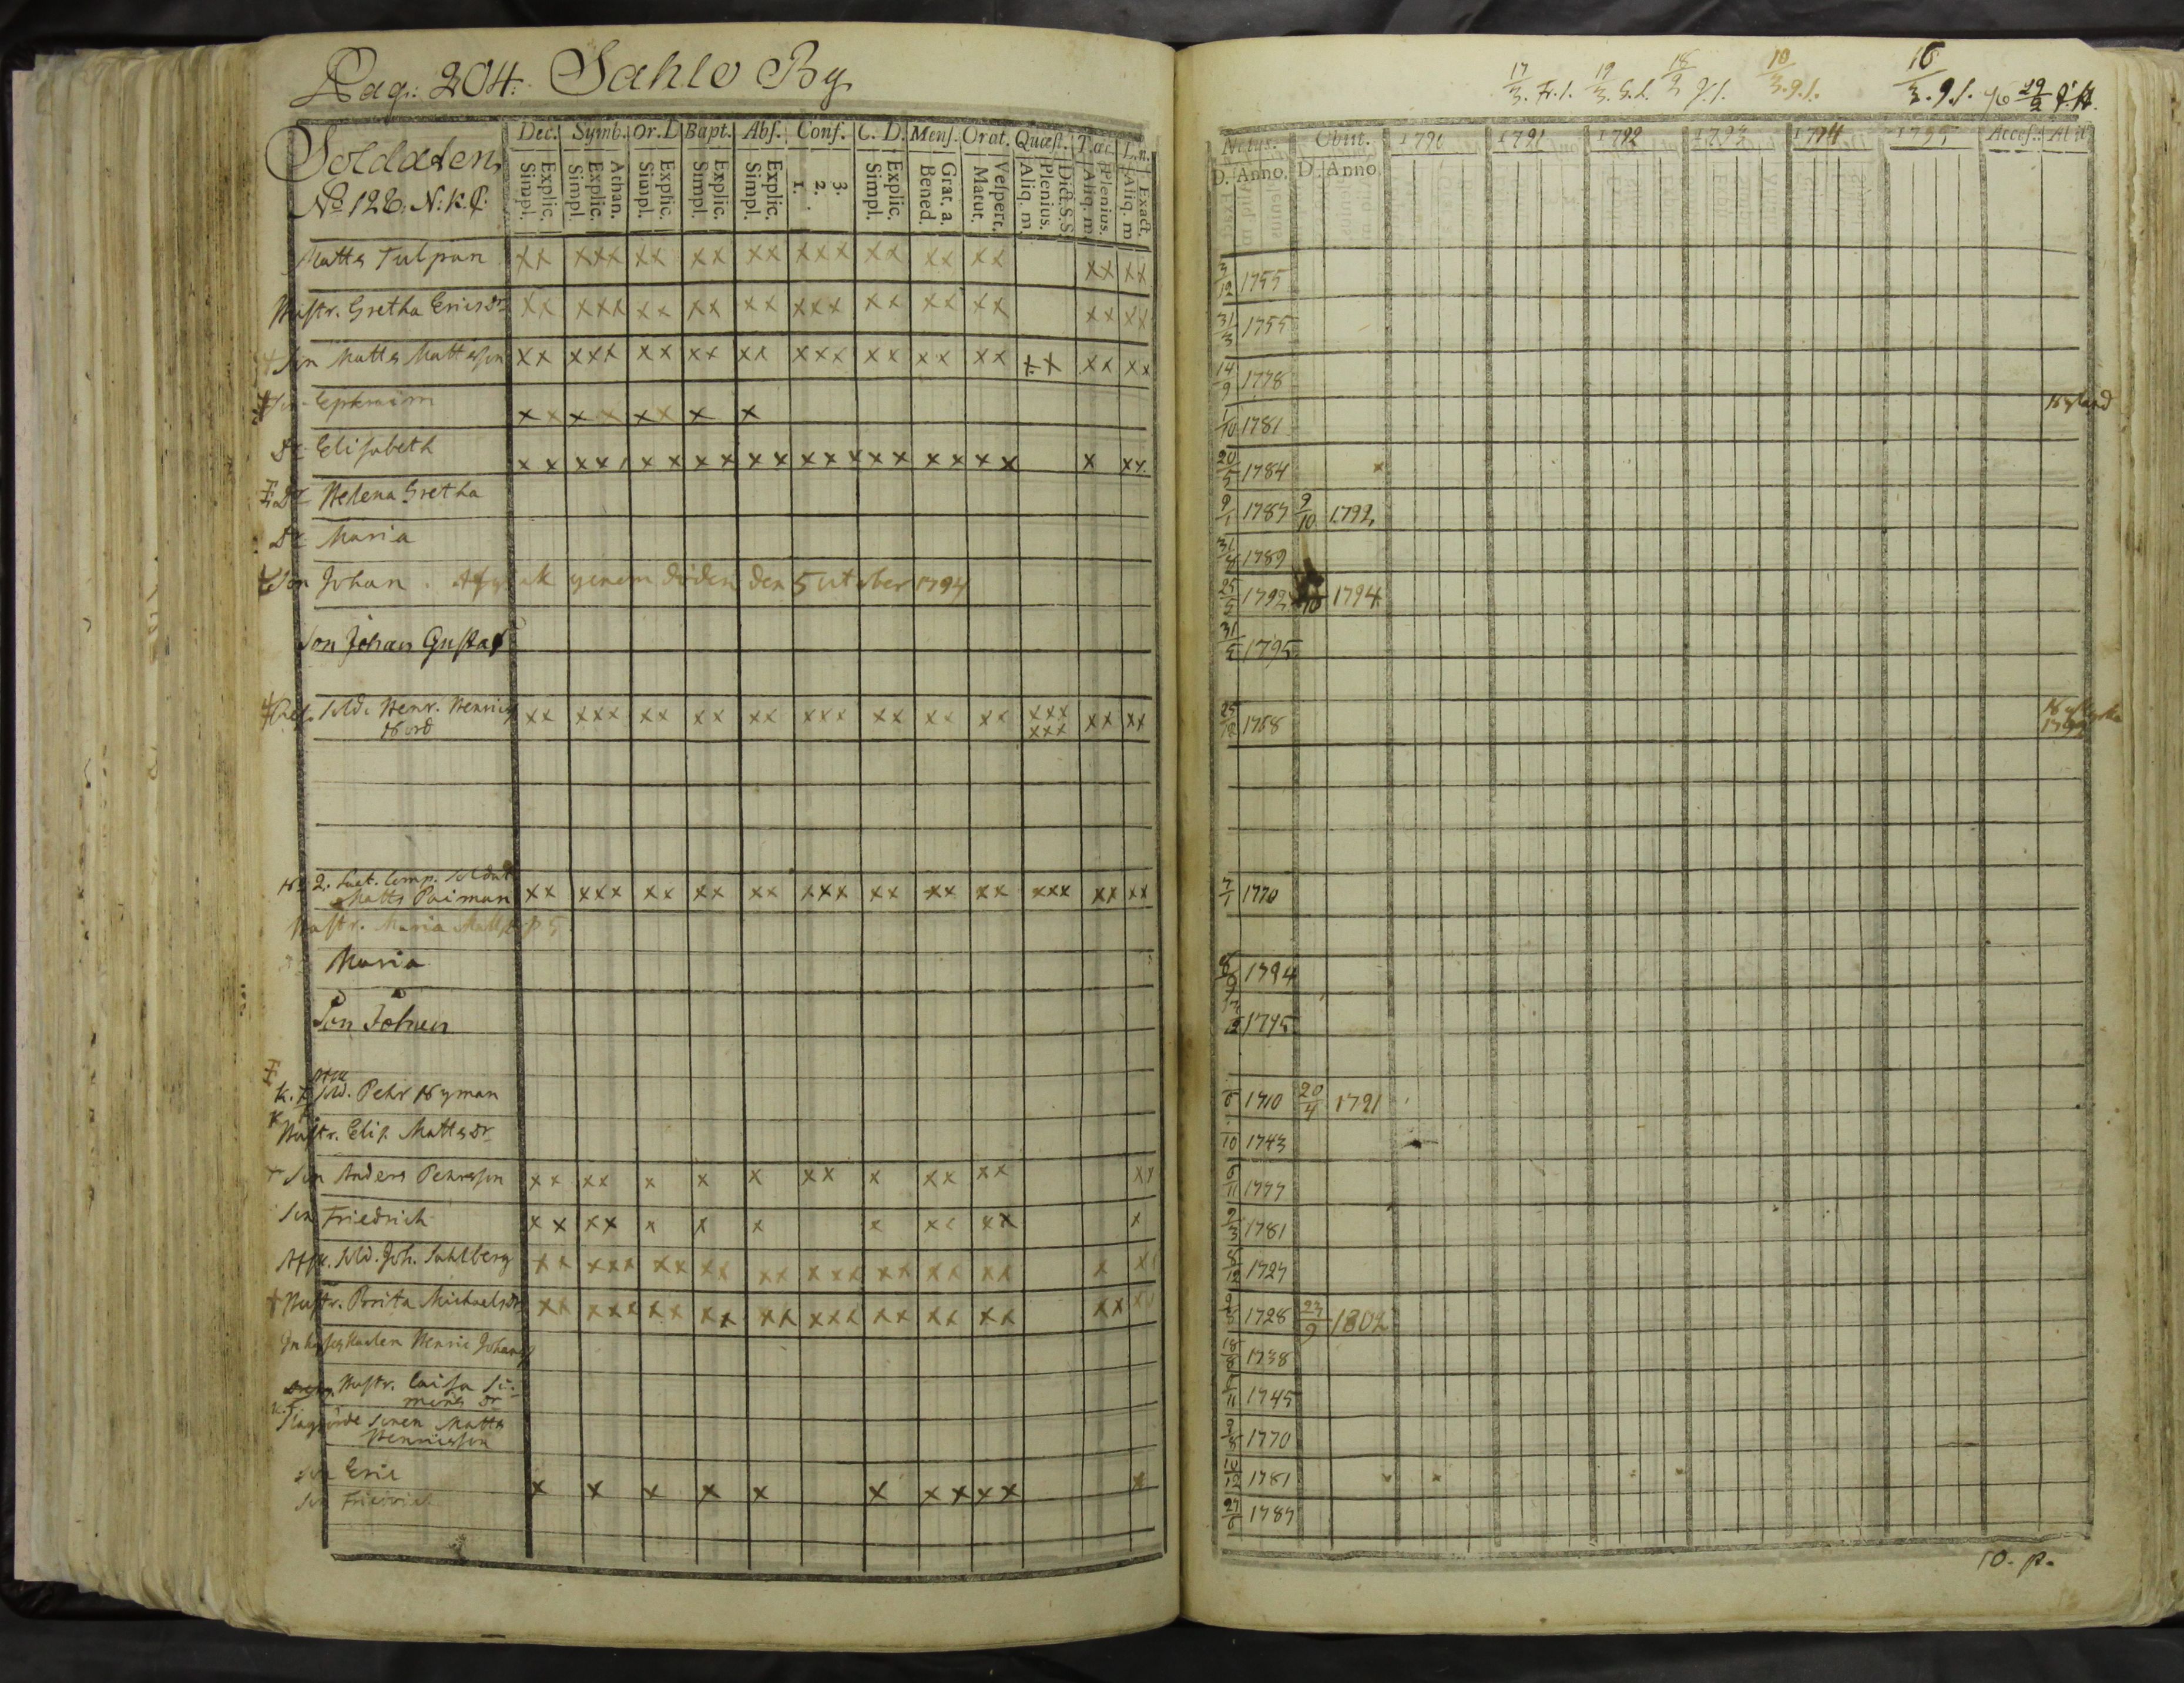 Pag: 204. Sahlo By
Soldaten
No 128. N.K.C.
Dec. Symb. Or. D Bapt. Abs. Conf. C. D. Mens. Orat. Quæst. T.œc. L. n.
Explic. Simpl. Athan. Explic. Simpl. Explic. Simpl. Explic. Simpl. Explic. Simpl. 3. 2. 1. Explic. Simpl. Grat. a. Bened. Vespert. Matut. Dict. S.S. Plenius. Aliq. m Plenius. Aliq. m Exact. Aliq. m
Matts Tulpan xx xxx xx xx xx xxx xx xx xx xx xx
Hustr. Gretha Ericsdr xx xxx xx xx xx xxx xx xx xx xx xx
Son Matts Mattsson xx xxx xx xx xx xxx xx xx xx xx xx xx
Son Ephraim x x x x x x x x
Dr Elisabeth x x x x x x x x x x x x x x x x x x x x xx
Dr Helena Gretha
Dr Maria
Son Johan. Afgick genem döden den 5 october 1794
Son Johan Gustaf
Sold. Henr. Henrics
Nord xx xxx xx xx xx xxx xx xx xx xxx xxx xx xx
No 2. Lieut. Comp. Soldat
Matts Paiman xx xxx xx xx xx xxx xx xx xx xxx xx xx
Hustr. Maria
Maria
Son Johan
Afsk
K. Sold. Pehr Nyman
Hustr. Elis. Mattsdr
Son Anders Pehrsson xx xx x x x xx x xx xx xx
Son Friedrich x x xx x x x x xx xx x
Afsk. Sold. Joh. Sahlberg xx xxx xx xx xx xxx xx xx xx x xx
Hustr. Brita Michaelsdr xx xxx xx xx xx xxx xx xx xx xx xx
Inhyseskarlen Henric Johans
Hustr. Caisa Si-
mons dr
Sonen Matts
Henricsson
Son Eric x x x x x x x x x x x
Son Friedrich
17/3. Fr. 1. 19/3. S. 1. 18/2 g. 1. 10/3. g. 1. 16/3. g. 1. 96 29/2
Natus. Obiit. 1790 1791 1792 1793 1794 1795 Access. Abiit
D. Anno. D. Anno
3/12 1755
31/3 1755
14/9 1778
1/10 1781 Nyland
20/5 1784
9/1 1787 9/10 1792
31/8 1789
25/5 1792 10 1794
31/5 1795
25/12 1768
7/1 1770
1794
1795
6 1710 20/4 1791
10 1743
6/11 1777
9/3 1781
8/12 1727
9/5 1728 27/9 1802
18/8 1738
11 1745
9/8 1770
10/12 1781
27/6 1787
10. p.